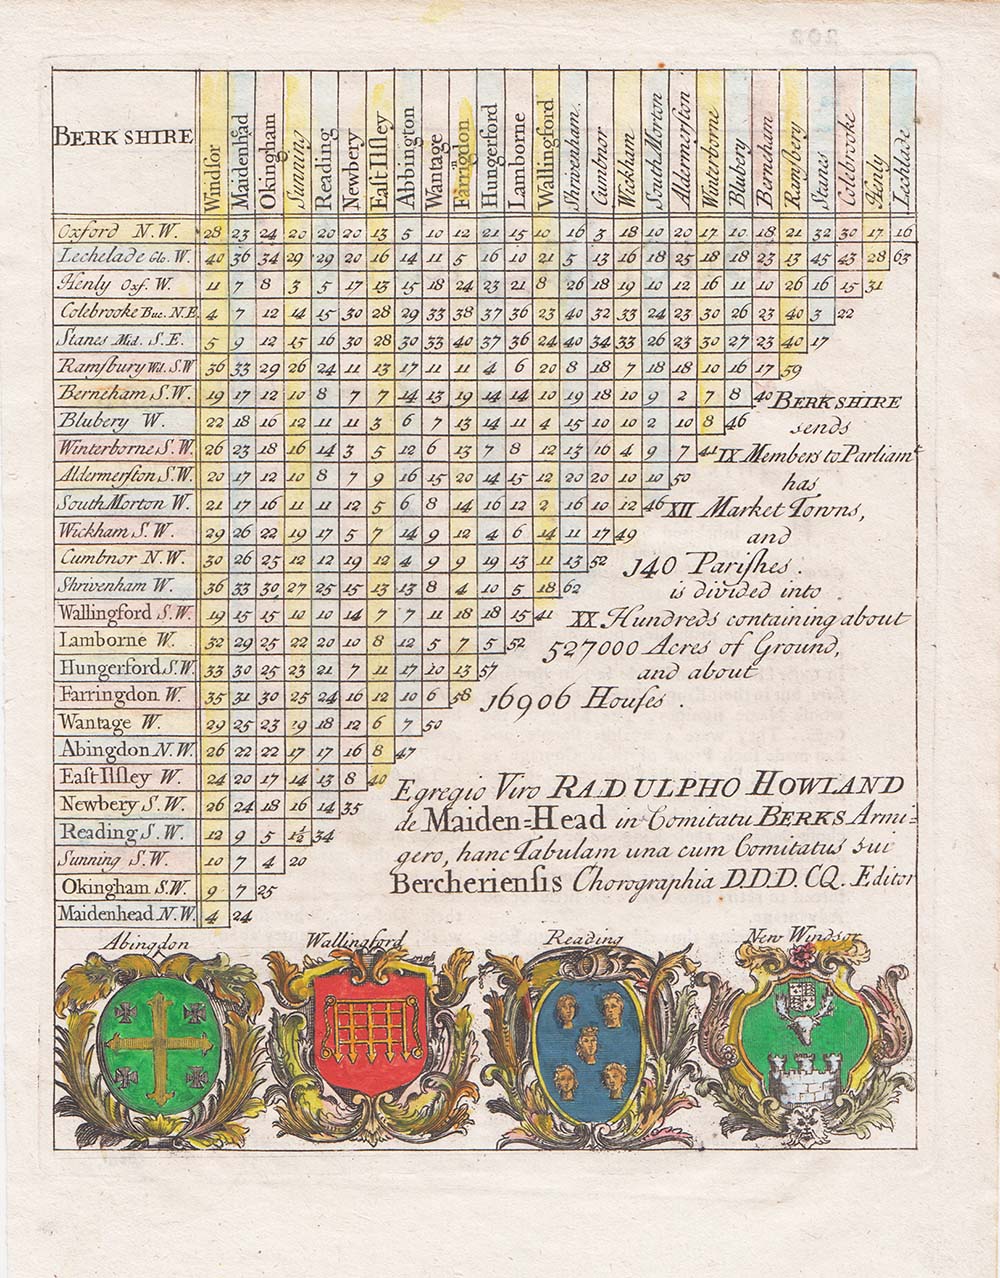 BERKSHIRE Windſor Maidenhead Okingham Sunning Reading Newbery Eaſt Ilſley Abbington Wantage Farringdon Hungerford Lamborne Wallingford Shrivenham. Cumbnor Wickham South Morton Aldermerſton Winterborne Blubery Berneham Ramſbery Stanes Colebrooke Henly Lechlade
Oxford N.W. 28 23 24 20 20 20 13 5 10 12 21 15 10 16 3 18 10 20 17 10 18 21 32 30 17 16
Lechelade Glo. W. 40 36 34 29 29 20 16 14 11 5 16 10 21 5 13 16 18 25 18 18 23 13 45 43 28 63
Henly Oxf. W. 11 7 8 3 5 17 13 15 18 24 23 21 8 26 18 19 10 12 16 11 10 26 16 15 31
Colebrooke Buc. N.E. 4 7 12 14 15 30 28 29 33 38 37 36 23 40 32 33 24 23 30 26 23 40 3 22
Stanes Mid. S.E. 5 9 12 15 16 30 28 30 33 40 37 36 24 40 34 33 26 23 30 27 23 40 17
Ramſbury Wil. S.W 36 33 29 26 24 11 13 17 11 11 4 6 20 8 18 7 18 18 10 16 17 59
Berneham S.W. 19 17 12 10 8 7 7 14 13 19 14 14 10 19 18 10 9 2 7 8 40
BERKSHIRE
Blubery W. 22 18 16 12 11 11 3 6 7 13 14 11 4 15 10 10 2 10 8 46
sends
Winterborne S.W. 26 23 18 16 14 3 5 12 6 13 7 8 12 13 16 4 9 7 41
IX Members to Parliamt
Aldermerſton S.W. 20 17 12 10 8 7 9 16 15 20 14 15 12 20 20 10 10 50
has
South Morton W. 21 17 16 11 11 12 5 6 8 14 16 12 2 16 10 12 46
XII Market Towns,
Wickham S.W. 29 26 22 19 17 5 7 14 9 12 4 6 14 11 17 49
and
Cumbnor N.W. 30 26 25 12 12 19 12 4 9 9 19 13 11 13 52
140 Pariſhes.
Shrivenham W. 36 33 30 27 25 15 13 13 8 4 10 5 18 62
is divided into
Wallingford S.W. 19 15 15 10 10 14 7 7 11 18 18 15 41
XX Hundreds containing about
Lamborne W. 32 29 25 22 20 10 8 12 5 7 5 52
527000 Acres of Ground,
Hungerford S.W. 33 30 25 23 21 7 11 17 10 13 57
and about
Farringdon W. 35 31 30 25 24 16 12 10 6 58
16906 Houſes.
Wantage W. 29 25 23 19 18 12 6 7 50
Abingdon N.W. 26 22 22 17 17 16 8 47
Eaſt Ilſley W. 24 20 17 14 13 8 40
Newbery S.W. 26 24 18 16 14 35
Reading S.W. 12 9 5 1½ 34
Sunning S.W. 10 7 4 20
Okingham S.W. 9 7 25
Maidenhead N.W. 4 24
Egregio Viro RADULPHO HOWLAND
de Maiden=Head in Comitatu BERKS Armi-
gero, hanc Tabulam una cum Comitatus sui
Bercherienſis Chorographia D.D.D. CQ. Editor
Abingdon Wallingford Reading New Windsor